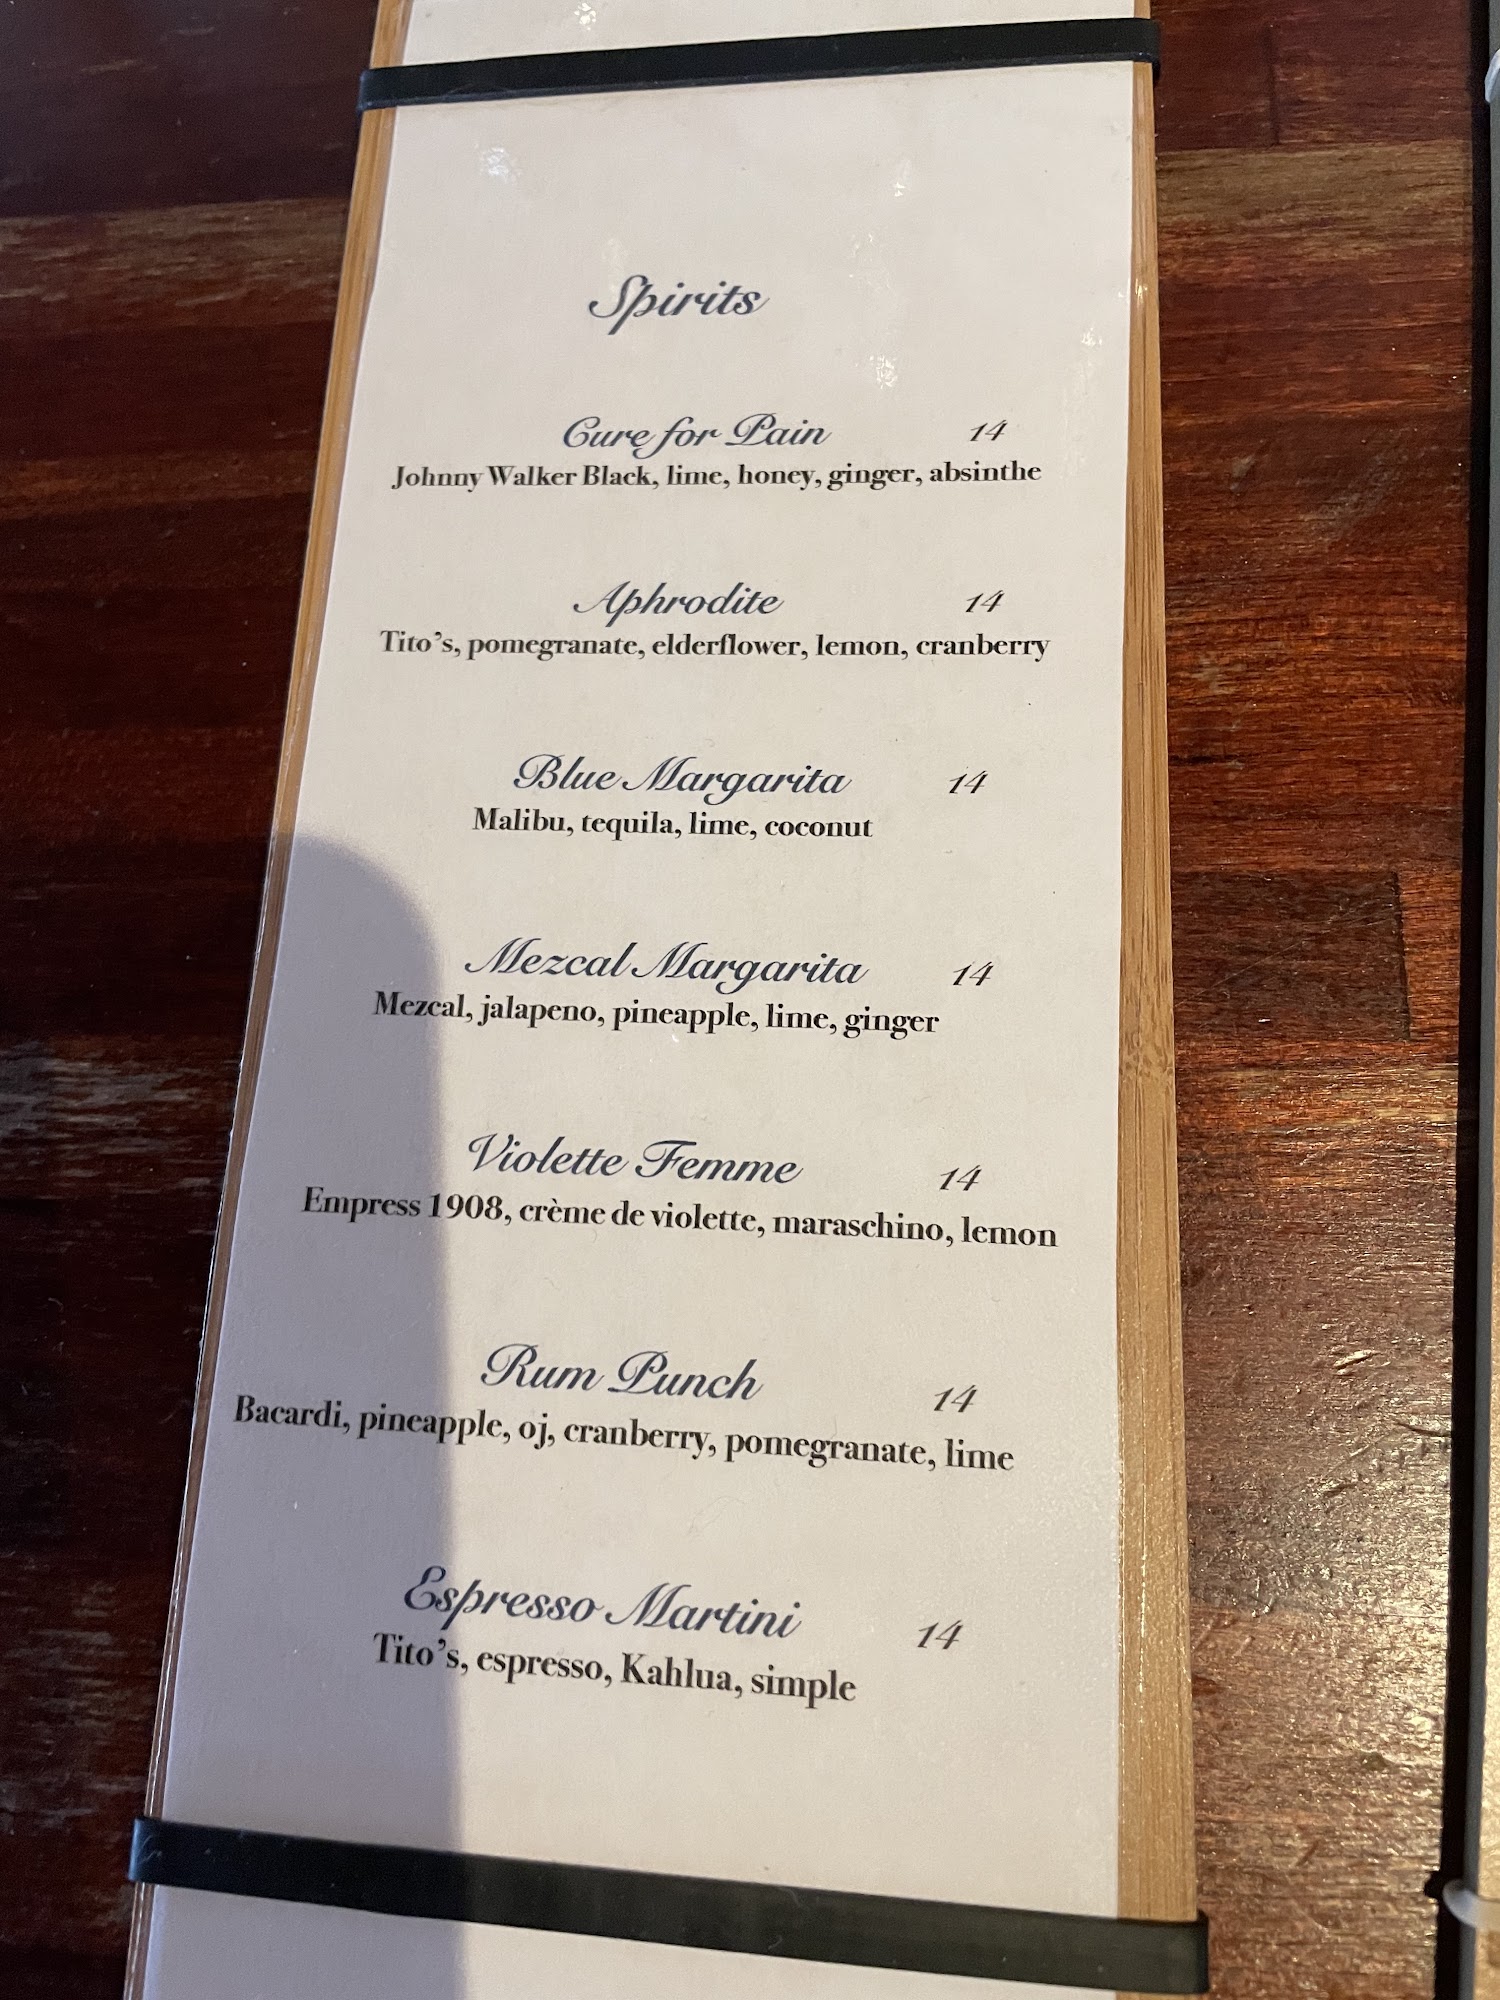 Spirits
Cure for Pain 14
Johnny Walker Black, lime, honey, ginger, absinthe
Aphrodite 14
Tito's, pomegranate, elderflower, lemon, cranberry
Blue Margarita 14
Malibu, tequila, lime, coconut
Mezcal Margarita 14
Mezcal, jalapeno, pineapple, lime, ginger
Violette Femme 14
Empress 1908, crème de violette, maraschino, lemon
Rum Punch 14
Bacardi, pineapple, oj, cranberry, pomegranate, lime
Espresso Martini 14
Tito's, espresso, Kahlua, simple